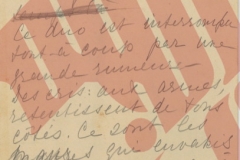 Ce duo est interrompu
tout à coup par une
grande rumeur
des cris: aux armes,
retentissent de tous
côtés. Ce sont les
maures qui envahis-